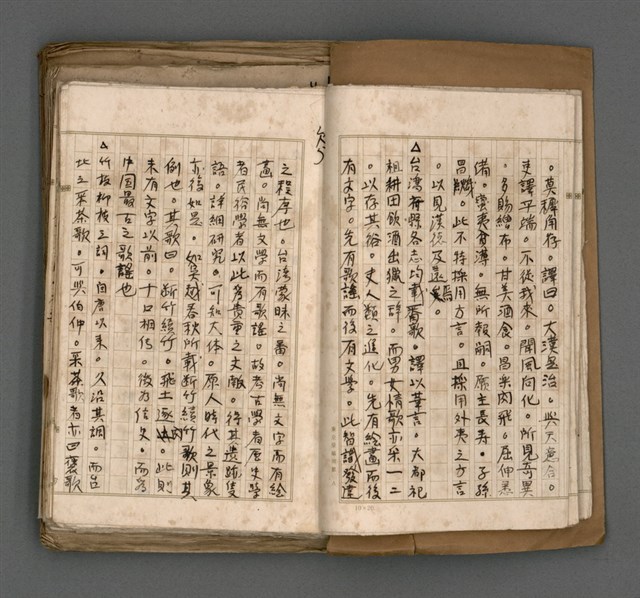 。莫穉角存。譯曰。大漢是治。與天意合。
吏譯平端。不從我來。聞風向化。所見奇異
。多賜繒布。甘美酒食。昌樂肉飛。屈伸悉
備。蠻夷貧薄。無所報嗣。願主長壽。子孫
昌熾。此不特採用方言。且採用外夷之方言
。以見漢德及遠焉。
△台灣府縣各志均載番歌。譯以華言。大都祀
祖耕田飲酒出獵之辞。而男女情歌亦采一二
。以存其俗。夫人類之進化。先有絵畫而後
有文字。先有歌謠而後有文學。此智識發達
之程序也。台湾蒙昧之番。尚無文字而有絵
畫。尚無文學而有歌謠。故考古學者歷史學
者民俗學者以此為貴重之文献。得其遺跡隻
語。詳細研究。可知大体。原人時代之景象
亦復如是。如吳越春秋所載断竹續竹歌則其
例也。其歌曰。断竹續竹。飛土逐肉。此則
未有文字以前。十口相傳。後為信史。而為
中国最古之歌謠也
△竹枝柳枝之詞。自唐以來。久沿其調。而台
北之采茶歌。可與伯仲。采茶歌者亦曰褒歌